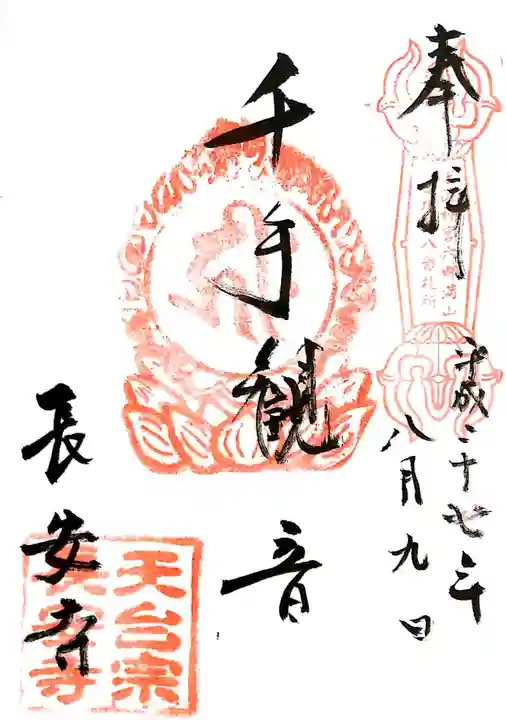 奉拝
八番札所
平成二十七年
八月九日
千手観音
長安寺
天台宗
長安寺